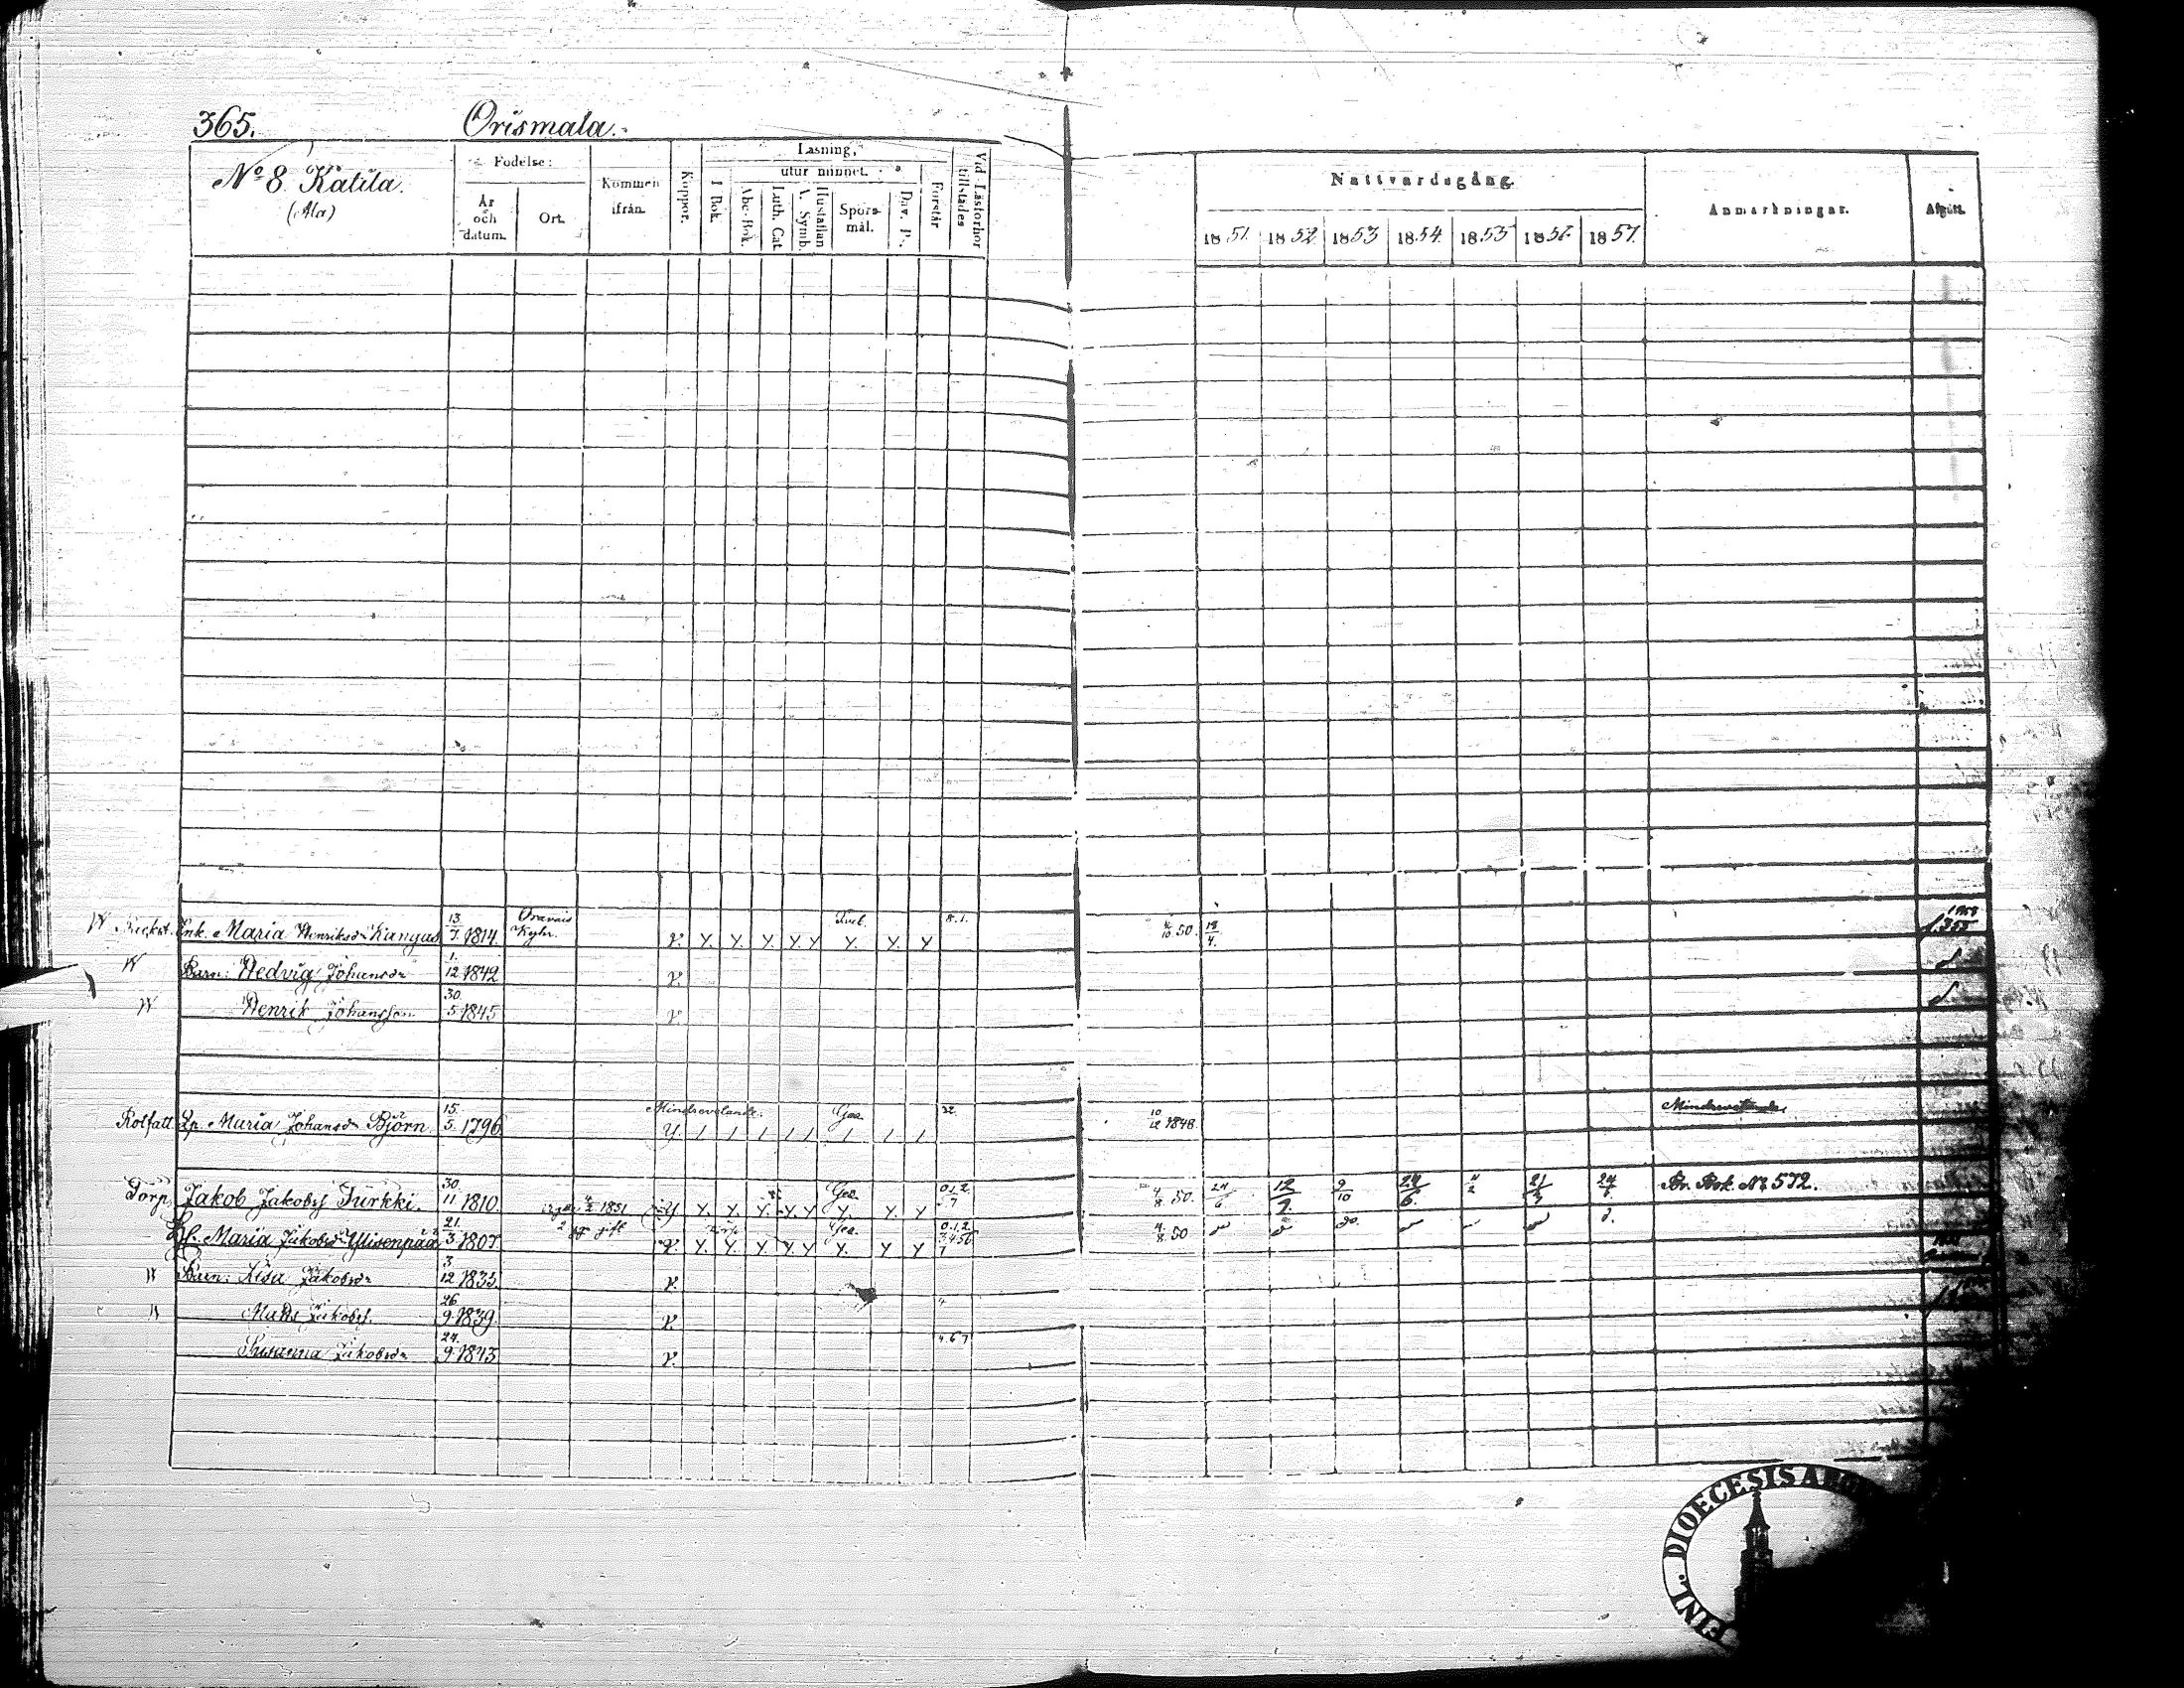 365. Orismala.
No 8. Katila.
(Ala)
Födelse:
År och datum.
Ort.
Kommen ifrån.
Koppor.
Läsning,
utur minnet.
I Bok.
Abc-Bok.
Luth. Cat.
A. Symb.
Hustaflan
Spörsmål.
Dav. P.
Förstår
Vid Läsförhör tillstädes
Nattvardsgång.
1851. 1852. 1853 1854. 1855 1856. 1857.
Anmärkningar.
Afgått.
Enk. Maria Henriksdr Kangas 13/7. 1814. Oravais Kyla. v. y. y. y. y y y. y. y 8.1. 50. 1858
Barn: Hedvig Johansdr 1/12 1842 v.
Henrik Johansson 30/5 1845 v.
Rotfatt. Lp. Maria Johansdr Björn 15/5. 1796 Mindrevetande. Goa 22. y. / / / / / / / / 10/12 1848. Mindrevetande
Torp. Jakob Jakobss Turkki. 30/11 1810 1851 Goa 0.1.2. 7 y y. y. y. y. y y. y. y 4/8 50. 24/6 12/9. 9/10 24/6. 4/2 21/5 24/6. Br. Bok. No 572.
Hu. Maria Jakobsdr Ylisenpää 21/3 1807. Goa. 0.1.2. 3.4.5.6 7 v. y. y. y. y y y. y y 4/8 50 do.
Barn: Lisa Jakobsdr 3/12 1835 v.
Matts Jakobss. 26/9 1839 v.
Susanna Jakobsdr 24/9 1843 v. 4.6.7
FINL. DIOECESIS